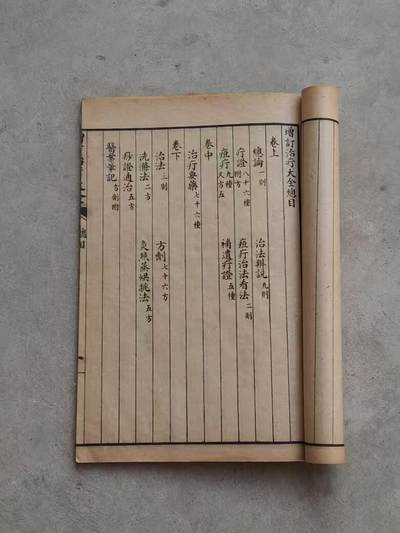 增訂治疔大全總目
卷上
總論一則 治法辨說九則
疔證八十六種附方 痘疔治法看法二則
痘疔九種又方五 補遺疔證五種
卷中
治疔要藥七十六種
卷下
治法三則 方劑七十六方
洗滌法二方 灸熨蒸烘挑法五方
痧證通治五方
醫案筆記方劑附
總目